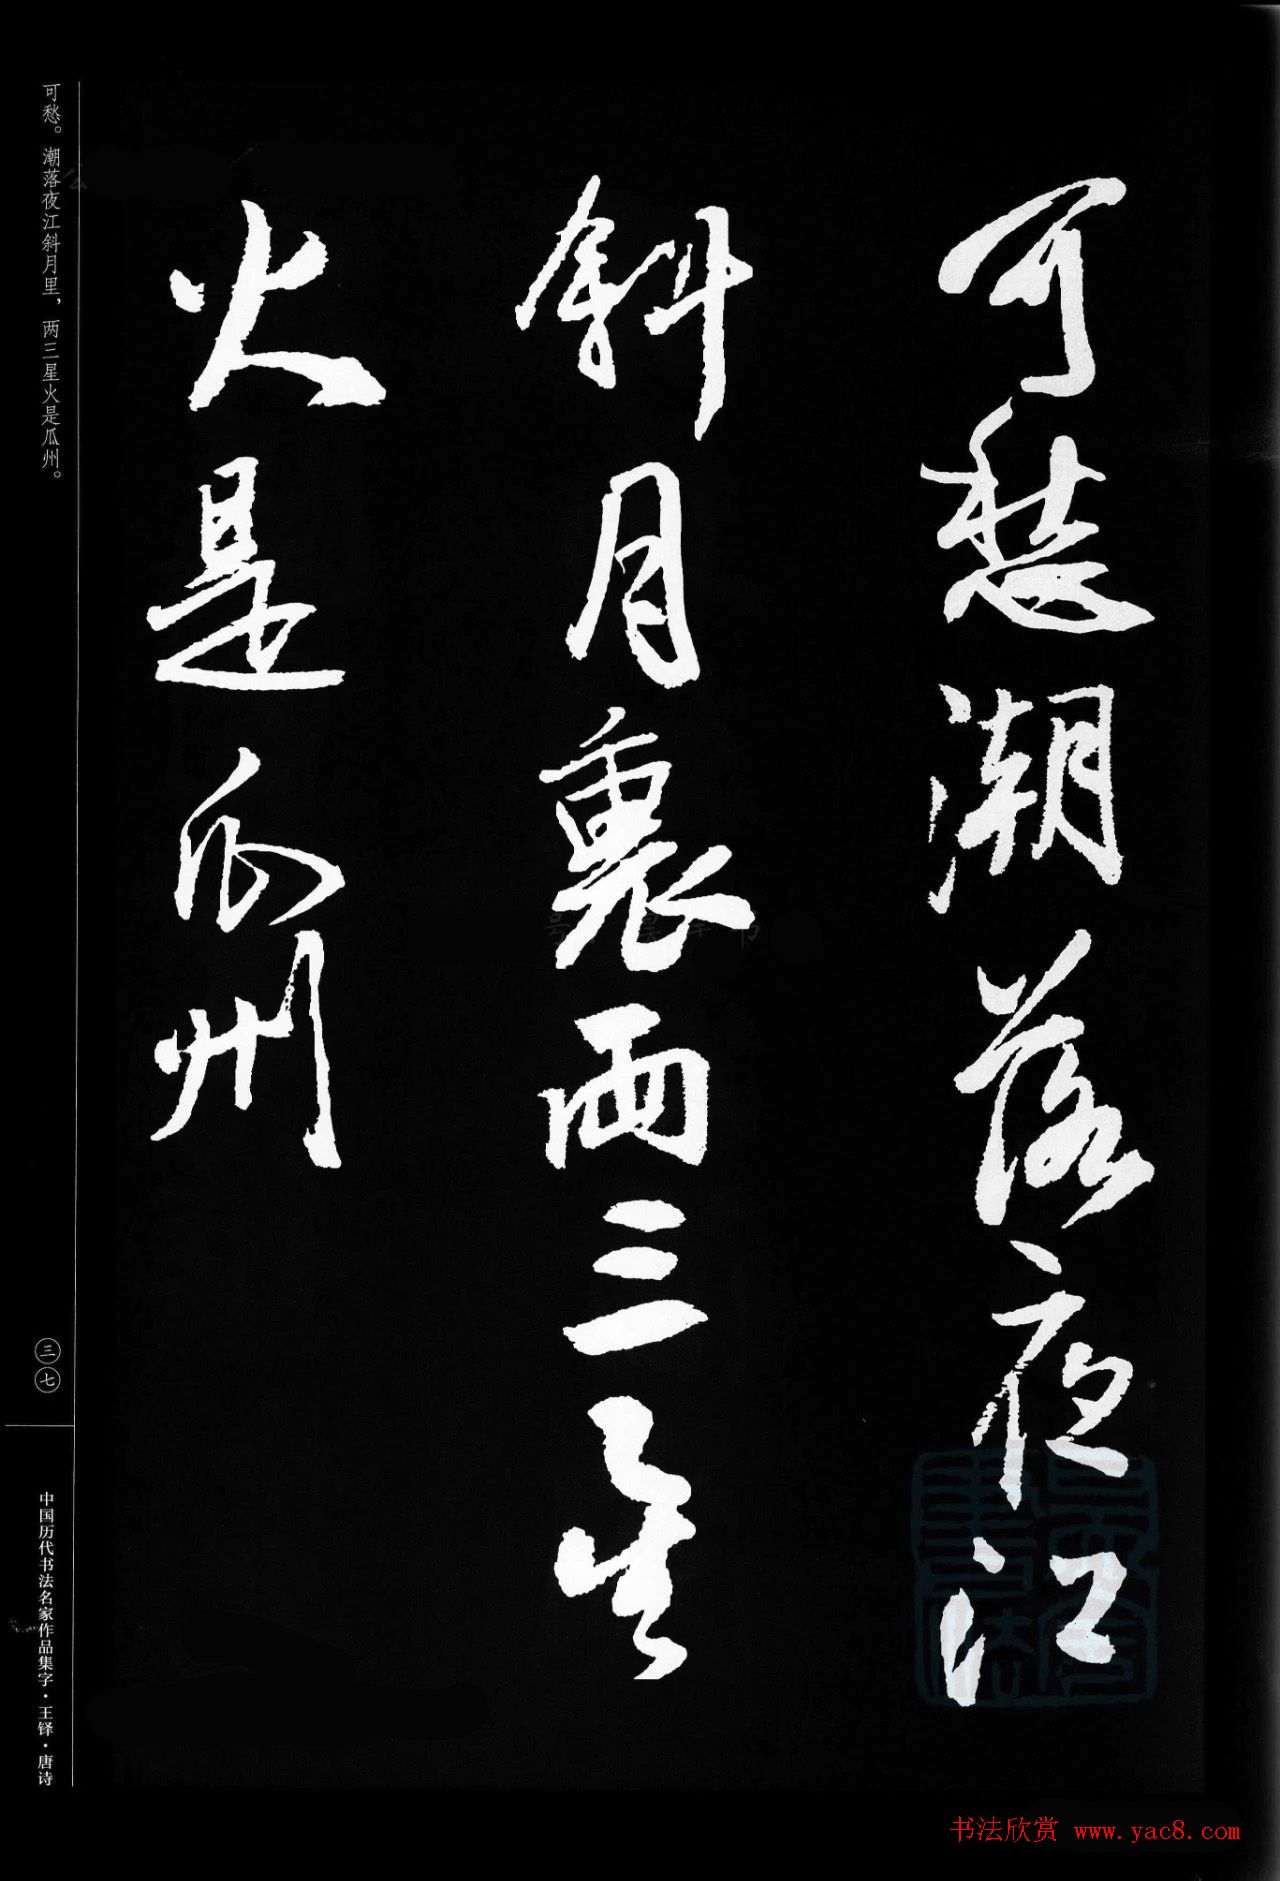 可愁潮落夜江
斜月裏兩三星
火是瓜州
可愁。潮落夜江斜月里，两三星火是瓜州。
三七
中国历代书法名家作品集字·王铎·唐诗
书法欣赏 www.yac8.com